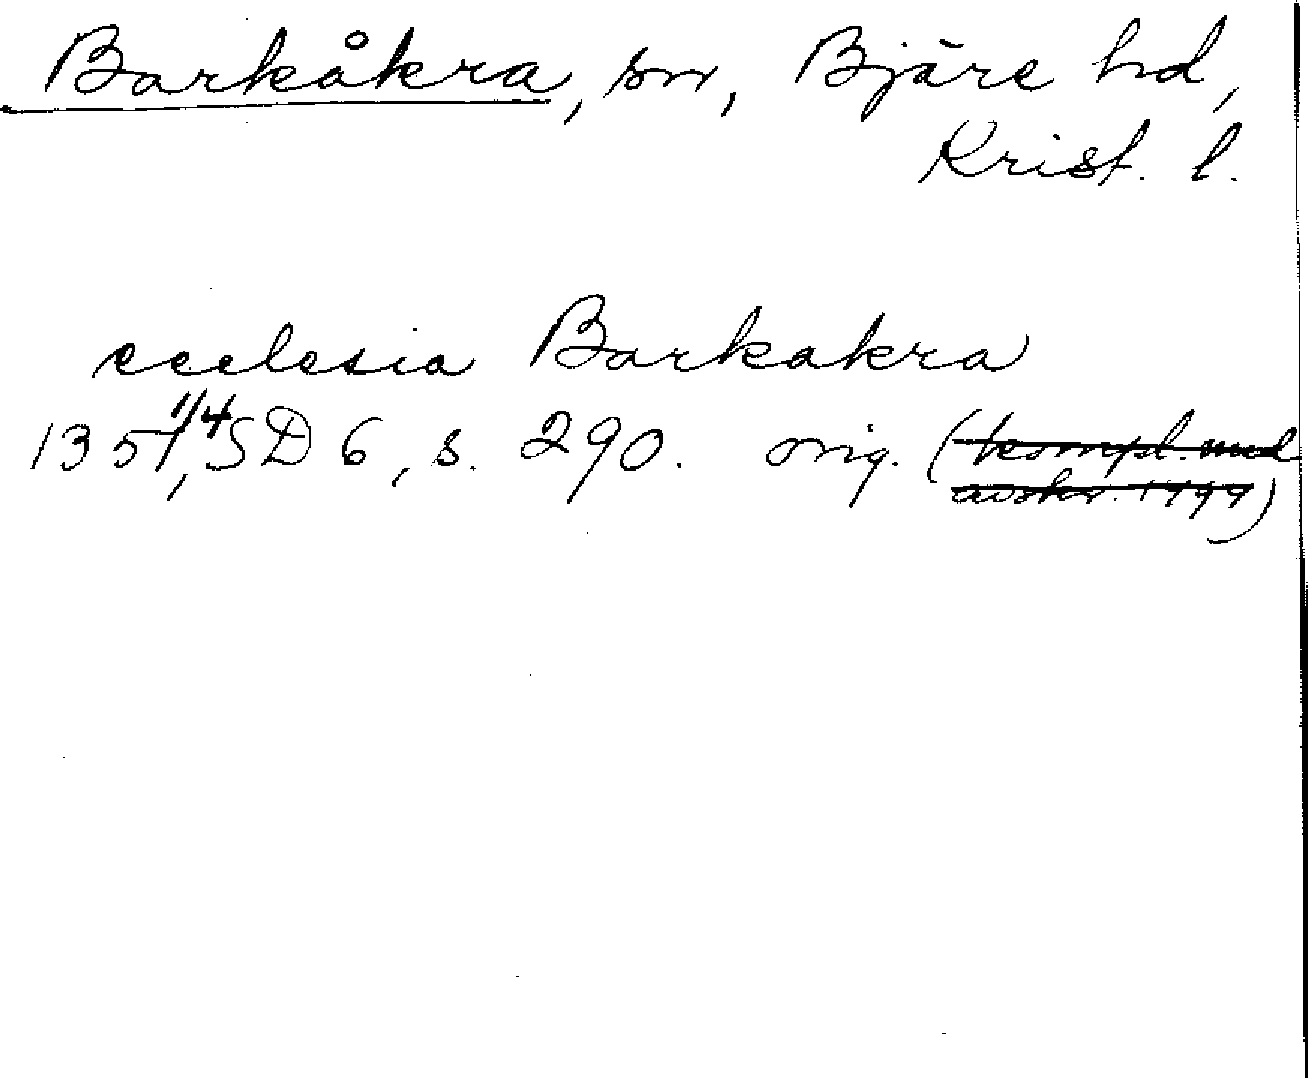 Barkåkra, sn, Bjäre hd,
Krist. l.
ecclesia Barkakra
1357 1/4, SD 6, s. 290. orig. (kompl. med
avskr. 1494)